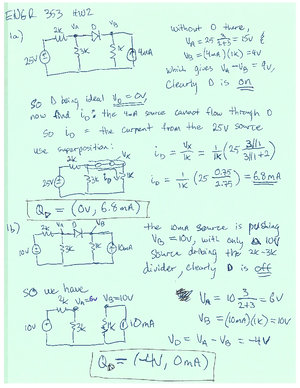 ENGR 353 HW2
1a)
2k VA D VB
25V 3k 1k 4mA
without D there,
VA = 25 3/(2+3) = 15V &
VB = (4mA)(1K) = 4V
which gives VA - VB = 9V,
Clearly D is on
so D being ideal VD = 0V,
now find iD: the 4mA source cannot flow through D
so iD = the current from the 25V source
use superposition:
2k
25V 3k iD 1k
iD = Vx/1K = 1/1K (25 3//1/(3//1+2))
iD = 1/1K (25 0.75/2.75) = 6.8mA
QD = (0V, 6.8mA)
1b)
2k VA D VB
10V 3k 1k 10mA
the 10mA source is pushing
VB = 10V, with only a 10V
source driving the 2k-3k
divider, clearly D is off
so we have
2k VA=6V VB=10V
10V 3k 1k 10mA
VA = 10 3/(2+3) = 6V
VB = (10mA)(1K) = 10V
VD = VA - VB = -4V
QD = (-4V, 0mA)